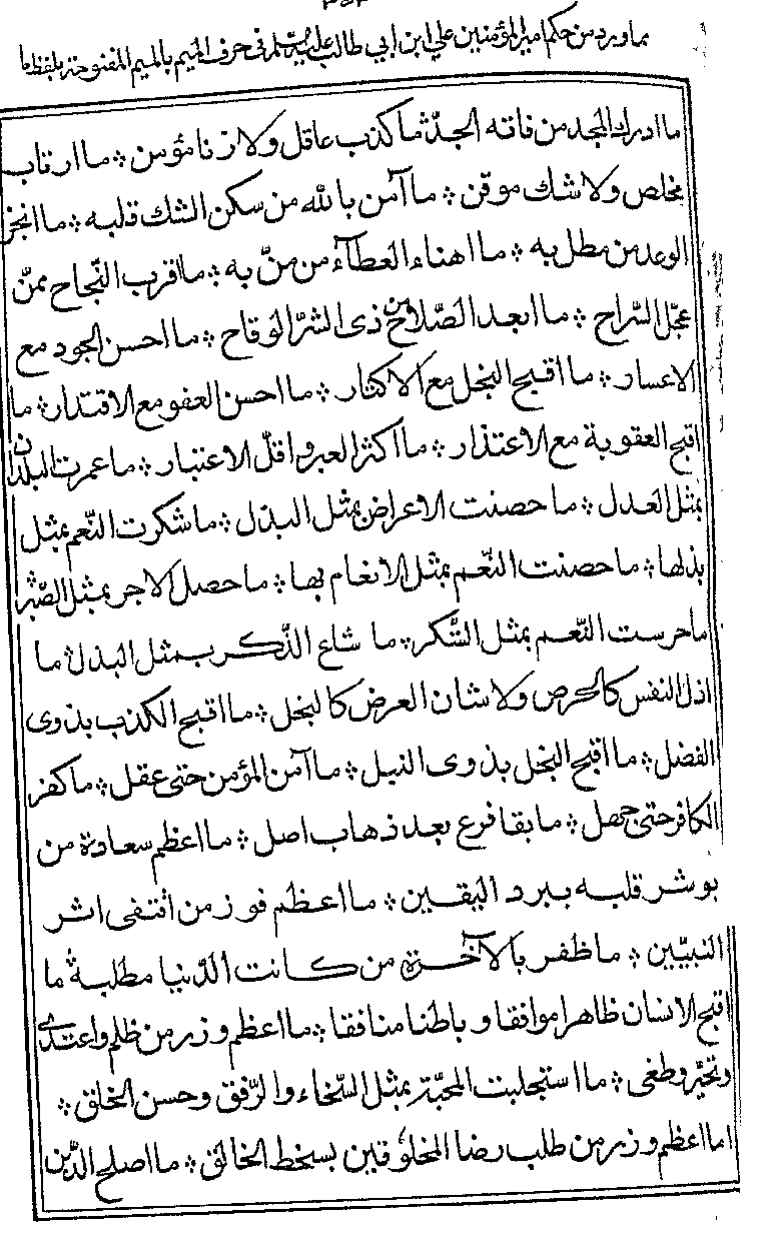 مما ورد من حكم امير المؤمنين علي ابن ابي طالب عليه السلم في حرف الميم بالميم المفتوحة بلفظ ما
ما ادرك المجد من فاته الجدّ ؞ ما كذب عاقل ولا زنا مؤمن ؞ ما ارتاب
مخلص ولا شك موقن ؞ ما آمن بالله من سكن الشك قلبه ؞ ما انجز
الوعد من مطل به ؞ ما اهناء العطآء من منّ به ؞ ما اقرب النّجاح ممنّ
عجّل السّراح ؞ ما ابعد الصّلاح من ذى الشرّ الوقاح ؞ ما احسن الجود مع
الاعسار ؞ ما اقبح البخل مع الاكثار ؞ ما احسن العفو مع الاقتدار ؞ ما
اقبح العقوبة مع الاعتذار ؞ ما اكثر العبر واقلّ الاعتبار ؞ ما عمرت البلدان
بمثل العدل ؞ ما حصنت الاعراض بمثل البذل ؞ ما شكرت النّعم بمثل
بذلها ؞ ما حصنت النّعم بمثل الانعام بها ؞ ما حصل الاجر بمثل الصّبر
ما حرست النّعم بمثل الشّكر ؞ ما شاع الذّكر بمثل البذل ؞ ما
اذل النفس كالحرص ولا شان العرض كالبخل ؞ ما اقبح الكذب بذوى
الفضل ؞ ما اقبح البخل بذوى النبل ؞ ما آمن المؤمن حتى عقل ؞ ما كفر
الكافر حتى جهل ؞ ما بقا فرع بعد ذهاب اصل ؞ ما اعظم سعادة من
بوشر قلبه ببرد اليقين ؞ ما اعظم فوز من اقتفى اثر
النبيّين ؞ ما ظفر بالآخرة من كانت الدّنيا مطلبه ؞ ما
اقبح الانسان ظاهرا موافقا و باطنا منافقا ؞ ما اعظم وزر من ظلم واعتدى
وتجبّر وطغى ؞ ما استجلبت المحبّة بمثل السّخاء والرّفق وحسن الخلق ؞
ما اعظم وزر من طلب رضا المخلوقين بسخط الخالق ؞ ما اصلح الدّين